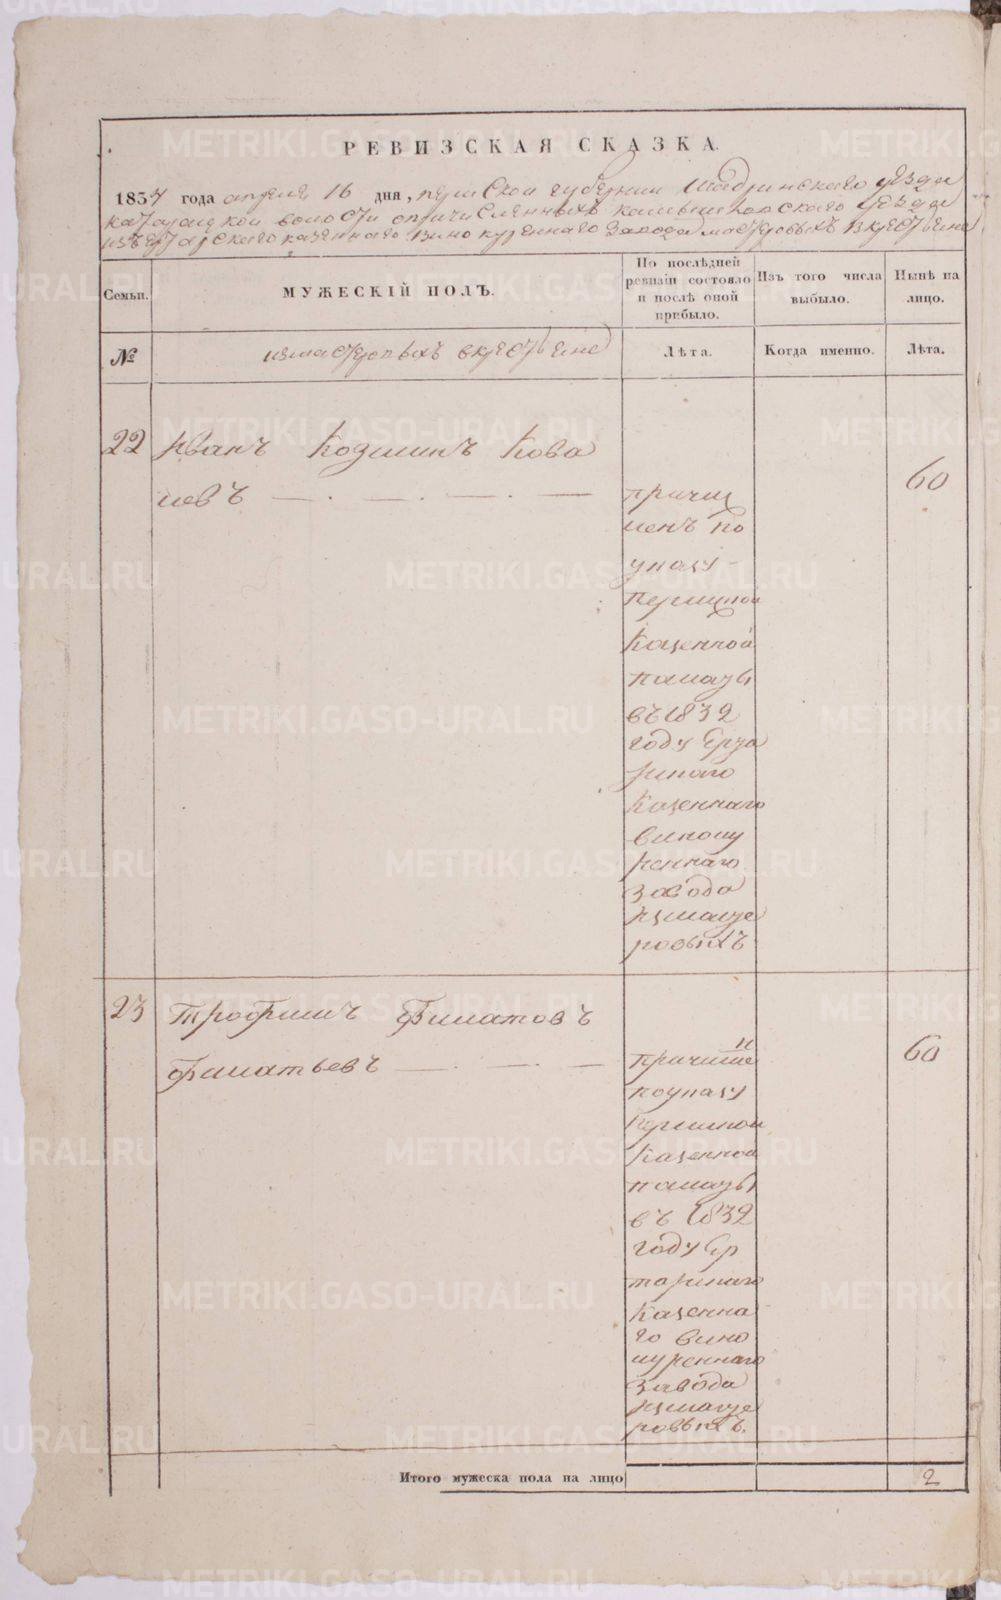 РЕВИЗСКАЯ СКАЗКА.
1834 года апреля 16 дня, пермской губернии Шадринского уезда
волости причисленныхъ камышловского уезда
изъ казенного винокуренного завода мастеровыхъ в крестьяне
Семьи. МУЖЕСКІЙ ПОЛЪ. По послѣдней ревизіи состояло и послѣ оной прибыло. Изъ того числа выбыло. Нынѣ на лицо.
№ измастеровыхъ вкрестьяне Лѣта. Когда именно. Лѣта.
22 Иванъ Козминъ Кова
левъ 60
причис
ленъ по
указу
Пермской
Казенной
палаты
въ 1832
году Ерта
рскаго
Казеннаго
виноку
реннаго
завода
измасте
ровыхъ
23 Трофимъ Филатовъ
Филатьевъ 60
причисле
н
поуказу
Пермской
Казенной
палаты
въ 1832
году Ер
тарскаго
Казенна
го вино
куреннаго
завода
измасте
ровыхъ.
Итого мужеска пола на лицо 2
METRIKI.GASO-URAL.RU